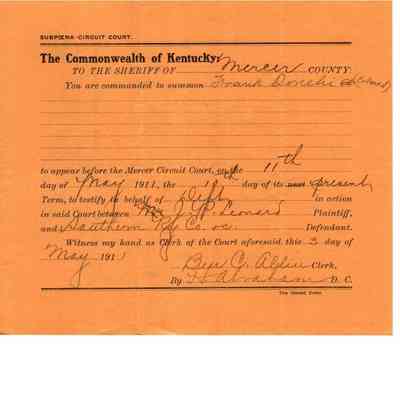 SUBPŒNA-CIRCUIT COURT.
The Commonwealth of Kentucky:
TO THE SHERIFF OF Mercer COUNTY:
You are commanded to summon Frank
to appear before the Mercer Circuit Court, on the 11th
day of May 1911, the day of its next present
Term, to testify in behalf of in action
in said Court between Leonard Plaintiff,
and Southern Ry Co. Defendant.
Witness my hand as Clerk of the Court aforesaid this 3 day of
May 1911
Ben C. Allin Clerk,
By D. C.